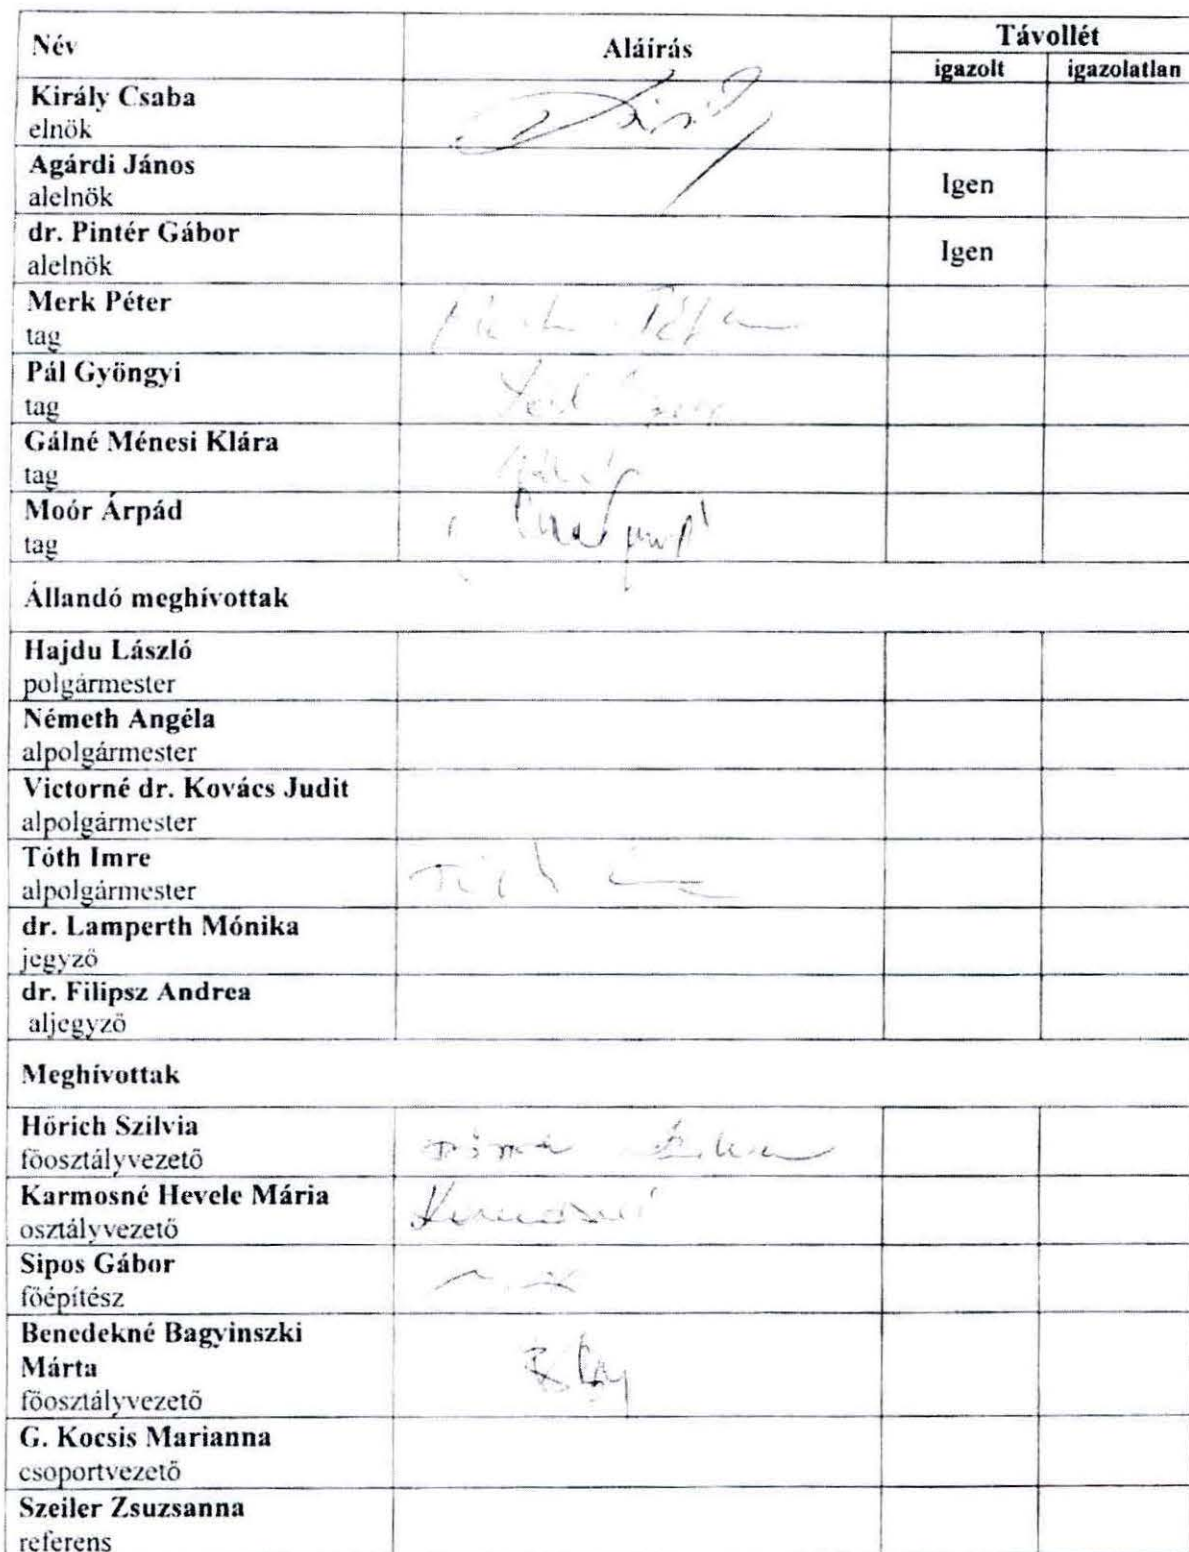 Név
Aláírás
Távollét
igazolt
igazolatlan
Király Csaba
elnök
Agárdi János
alelnök
Igen
dr. Pintér Gábor
alelnök
Igen
Merk Péter
tag
Pál Gyöngyi
tag
Gálné Ménesi Klára
tag
Moór Árpád
tag
Állandó meghívottak
Hajdu László
polgármester
Németh Angéla
alpolgármester
Victorné dr. Kovács Judit
alpolgármester
Tóth Imre
alpolgármester
dr. Lamperth Mónika
jegyző
dr. Filipsz Andrea
aljegyző
Meghívottak
Hörich Szilvia
főosztályvezető
Karmosné Hevele Mária
osztályvezető
Sipos Gábor
főépítész
Benedekné Bagyinszki
Márta
főosztályvezető
G. Kocsis Marianna
csoportvezető
Szeiler Zsuzsanna
referens